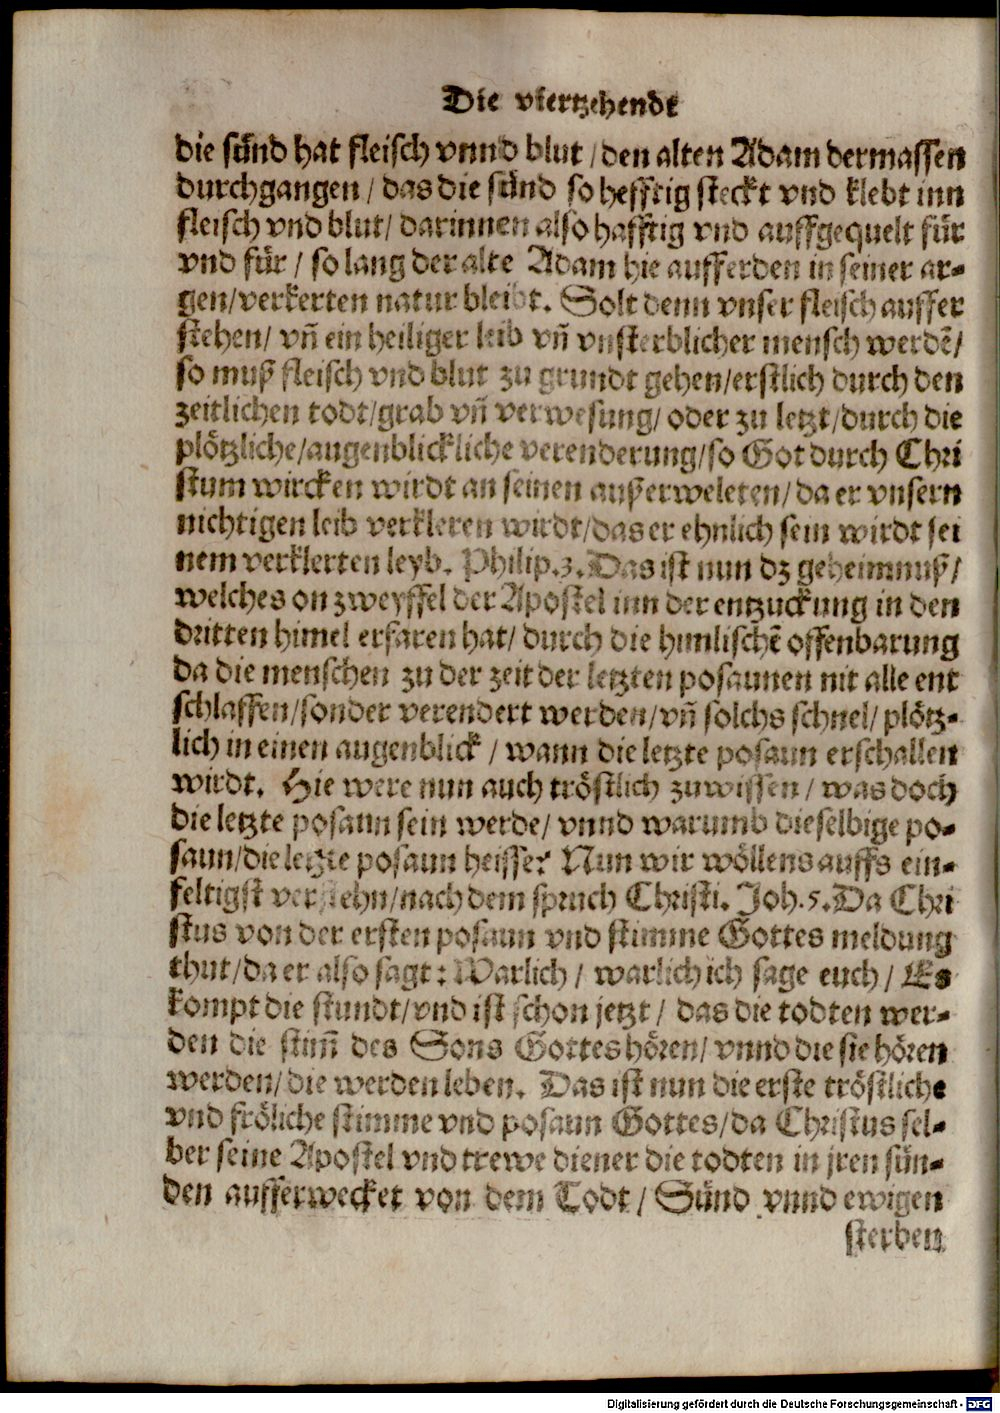 Die viertzehendt
die sünd hat fleisch vnnd blut / den alten Adam dermassen
durchgangen / das die sünd so hefftig steckt vnd klebt inn
fleisch vnd blut / darinnen also hafftig vnd auffgequelt für
vnd für / so lang der alte Adam hie aufferden in seiner ar-
gen / verkerten natur bleibt. Solt denn vnser fleisch auffer
stehen / vñ ein heiliger leib vñ vnsterblicher mensch werdẽ /
so muß fleisch vnd blut zu grundt gehen / erstlich durch den
zeitlichen todt / grab vñ verwesung / oder zu letzt / durch die
plötzliche / augenblickliche verenderung / so Got durch Chri
stum wircken wirdt an seinen außerweleten / da er vnsern
nichtigen leib verkleren wirdt / das er ehnlich sein wirdt sei
nem verklerten leyb. Philip.3. Das ist nun dz geheimnuß /
welches on zweyffel der Apostel inn der entzuckung in den
dritten himel erfaren hat / durch die himlischẽ offenbarung
da die menschen zu der zeit der letzten posaunen nit alle ent
schlaffen / sonder verendert werden / vñ solchs schnel / plötz-
lich in einen augenblick / wann die letzte posaun erschallen
wirdt. Hie were nun auch tröstlich zuwissen / was doch
die letzte posaun sein werde / vnnd warumb dieselbige po-
saun / die letzte posaun heisse? Nun wir wöllens auffs ein-
feltigst verstehn / nach dem spruch Christi. Joh.5. Da Chri
stus von der ersten posaun vnd stimme Gottes meldung
thut / da er also sagt: Warlich / warlich ich sage euch / Es
kompt die stundt / vnd ist schon jetzt / das die todten wer-
den die stim̃ des Sons Gottes hören / vnnd die sie hören
werden / die werden leben. Das ist nun die erste tröstliche
vnd fröliche stimme vnd posaun Gottes / da Christus sel-
ber seine Apostel vnd trewe diener die todten in jren sün-
den aufferwecket von dem Todt / Sünd vnnd ewigen
sterben
Digitalisierung gefördert durch die Deutsche Forschungsgemeinschaft - DFG